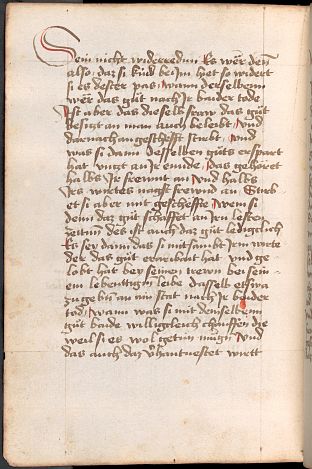 Sein nicht widerrednn Es wer den
also daz si kind beim het so widert
si es dester pas wann derselbenn
wer das gůt nach ir baider tode
Ist aber das dieselb fraw das gůt
besizt an man auch beleibt vnd
darnach an geschefft stirbt vnd
was si dann desselben gůts erspart
hat vnczt an ir ennde das gehoret
halbs ir frewnt an vnd halbs
Irs wirtes nagst frewnd an Stirbt
et si aber mit geschefft Wem si
denn daz gůt schaffet an irn lesten
zeitnn des ist auch daz gůt ledigclich
Es sey dann das si mitsambt irm wirte
der das gůt erweribnt hat vnd ge
lobt hat bey seinen trewn bey sein
em lebentigen leibe dasselb etswa
zugebnn an ain stat nach ir baider
tod wann was si mit demselbenn
gůt baide willigcleich schaffen die
weil si es wol getun mugn vnd
das auch daz verhantuestet wirtt